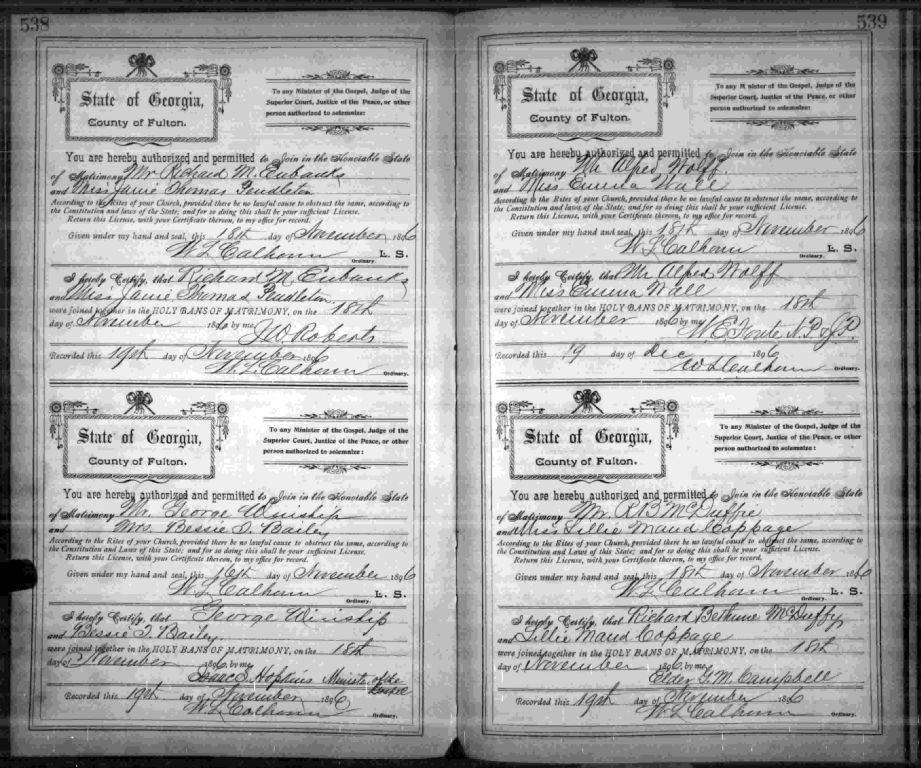 538
State of Georgia,
County of Fulton.
To any Minister of the Gospel, Judge of the
Superior Court, Justice of the Peace, or other
person authorized to solemnize:
You are hereby authorized and permitted to Join in the Honorable State
of Matrimony Mr Richard M. Eubanks
and Miss Janie Thomas Pendleton
According to the Rites of your Church, provided there be no lawful cause to obstruct the same, according to
the Constitution and laws of the State; and for so doing this shall be your sufficient License.
Return this License, with your Certificate thereon, to my office for record.
Given under my hand and seal, this 18th day of November 1896
W L Calhoun L. S.
Ordinary.
I hereby Certify, that Richard M. Eubanks
and Miss Janie Thomas Pendleton
were joined together in the HOLY BANS OF MATRIMONY, on the 18th
day of November 1896 by me,
J W Roberts
Recorded this 19th day of November 1896
W. L. Calhoun Ordinary.
State of Georgia,
County of Fulton.
To any Minister of the Gospel, Judge of the
Superior Court, Justice of the Peace, or other
person authorized to solemnize:
You are hereby authorized and permitted to Join in the Honorable State
of Matrimony Mr. George Winship
and Mrs. Bessie I. Bailey
According to the Rites of your Church, provided there be no lawful cause to obstruct the same, according to
the Constitution and Laws of this State; and for so doing this shall be your sufficient License.
Return this License, with your Certificate thereon, to my office for record.
Given under my hand and seal, this 16th day of November 1896
W. L. Calhoun L. S.
Ordinary.
I hereby Certify, that George Winship
and Bessie I. Bailey
were joined together in the HOLY BANS OF MATRIMONY, on the 18th
day of November 1896 by me,
Isaac S. Hopkins Minister of the Gospel
Recorded this 19th day of November 1896
W. L. Calhoun Ordinary.
539
State of Georgia,
County of Fulton.
To any Minister of the Gospel, Judge of the
Superior Court, Justice of the Peace, or other
person authorized to solemnize:
You are hereby authorized and permitted to Join in the Honorable State
of Matrimony Mr Alfred Wolff
and Miss Emma Wall
According to the Rites of your Church, provided there be no lawful cause to obstruct the same, according to
the Constitution and laws of the State; and for so doing this shall be your sufficient License.
Return this License, with your Certificate thereon, to my office for record.
Given under my hand and seal, this 18th day of November 1896
W L Calhoun L. S.
Ordinary.
I hereby Certify, that Mr Alfred Wolff
and Miss Emma Wall
were joined together in the HOLY BANS OF MATRIMONY, on the 18th
day of November 1896 by me,
W. E. Foute N. P & J. P.
Recorded this 19 day of Dec 1896
W L Calhoun Ordinary.
State of Georgia,
County of Fulton.
To any Minister of the Gospel, Judge of the
Superior Court, Justice of the Peace, or other
person authorized to solemnize:
You are hereby authorized and permitted to Join in the Honorable State
of Matrimony Mr. R B McDuffie
and Miss Lillie Maud Coppage
According to the Rites of your Church, provided there be no lawful cause to obstruct the same, according to
the Constitution and Laws of this State; and for so doing this shall be your sufficient License.
Return this License, with your Certificate thereon, to my office for record.
Given under my hand and seal, this 18th day of November 1896
W L Calhoun L. S.
Ordinary.
I hereby Certify, that Richard Bethune McDuffy
and Lillie Maud Coppage
were joined together in the HOLY BANS OF MATRIMONY, on the 18th
day of November 1896, by me,
Elder G. M. Campbell
Recorded this 19th day of November 1896
W L Calhoun Ordinary.